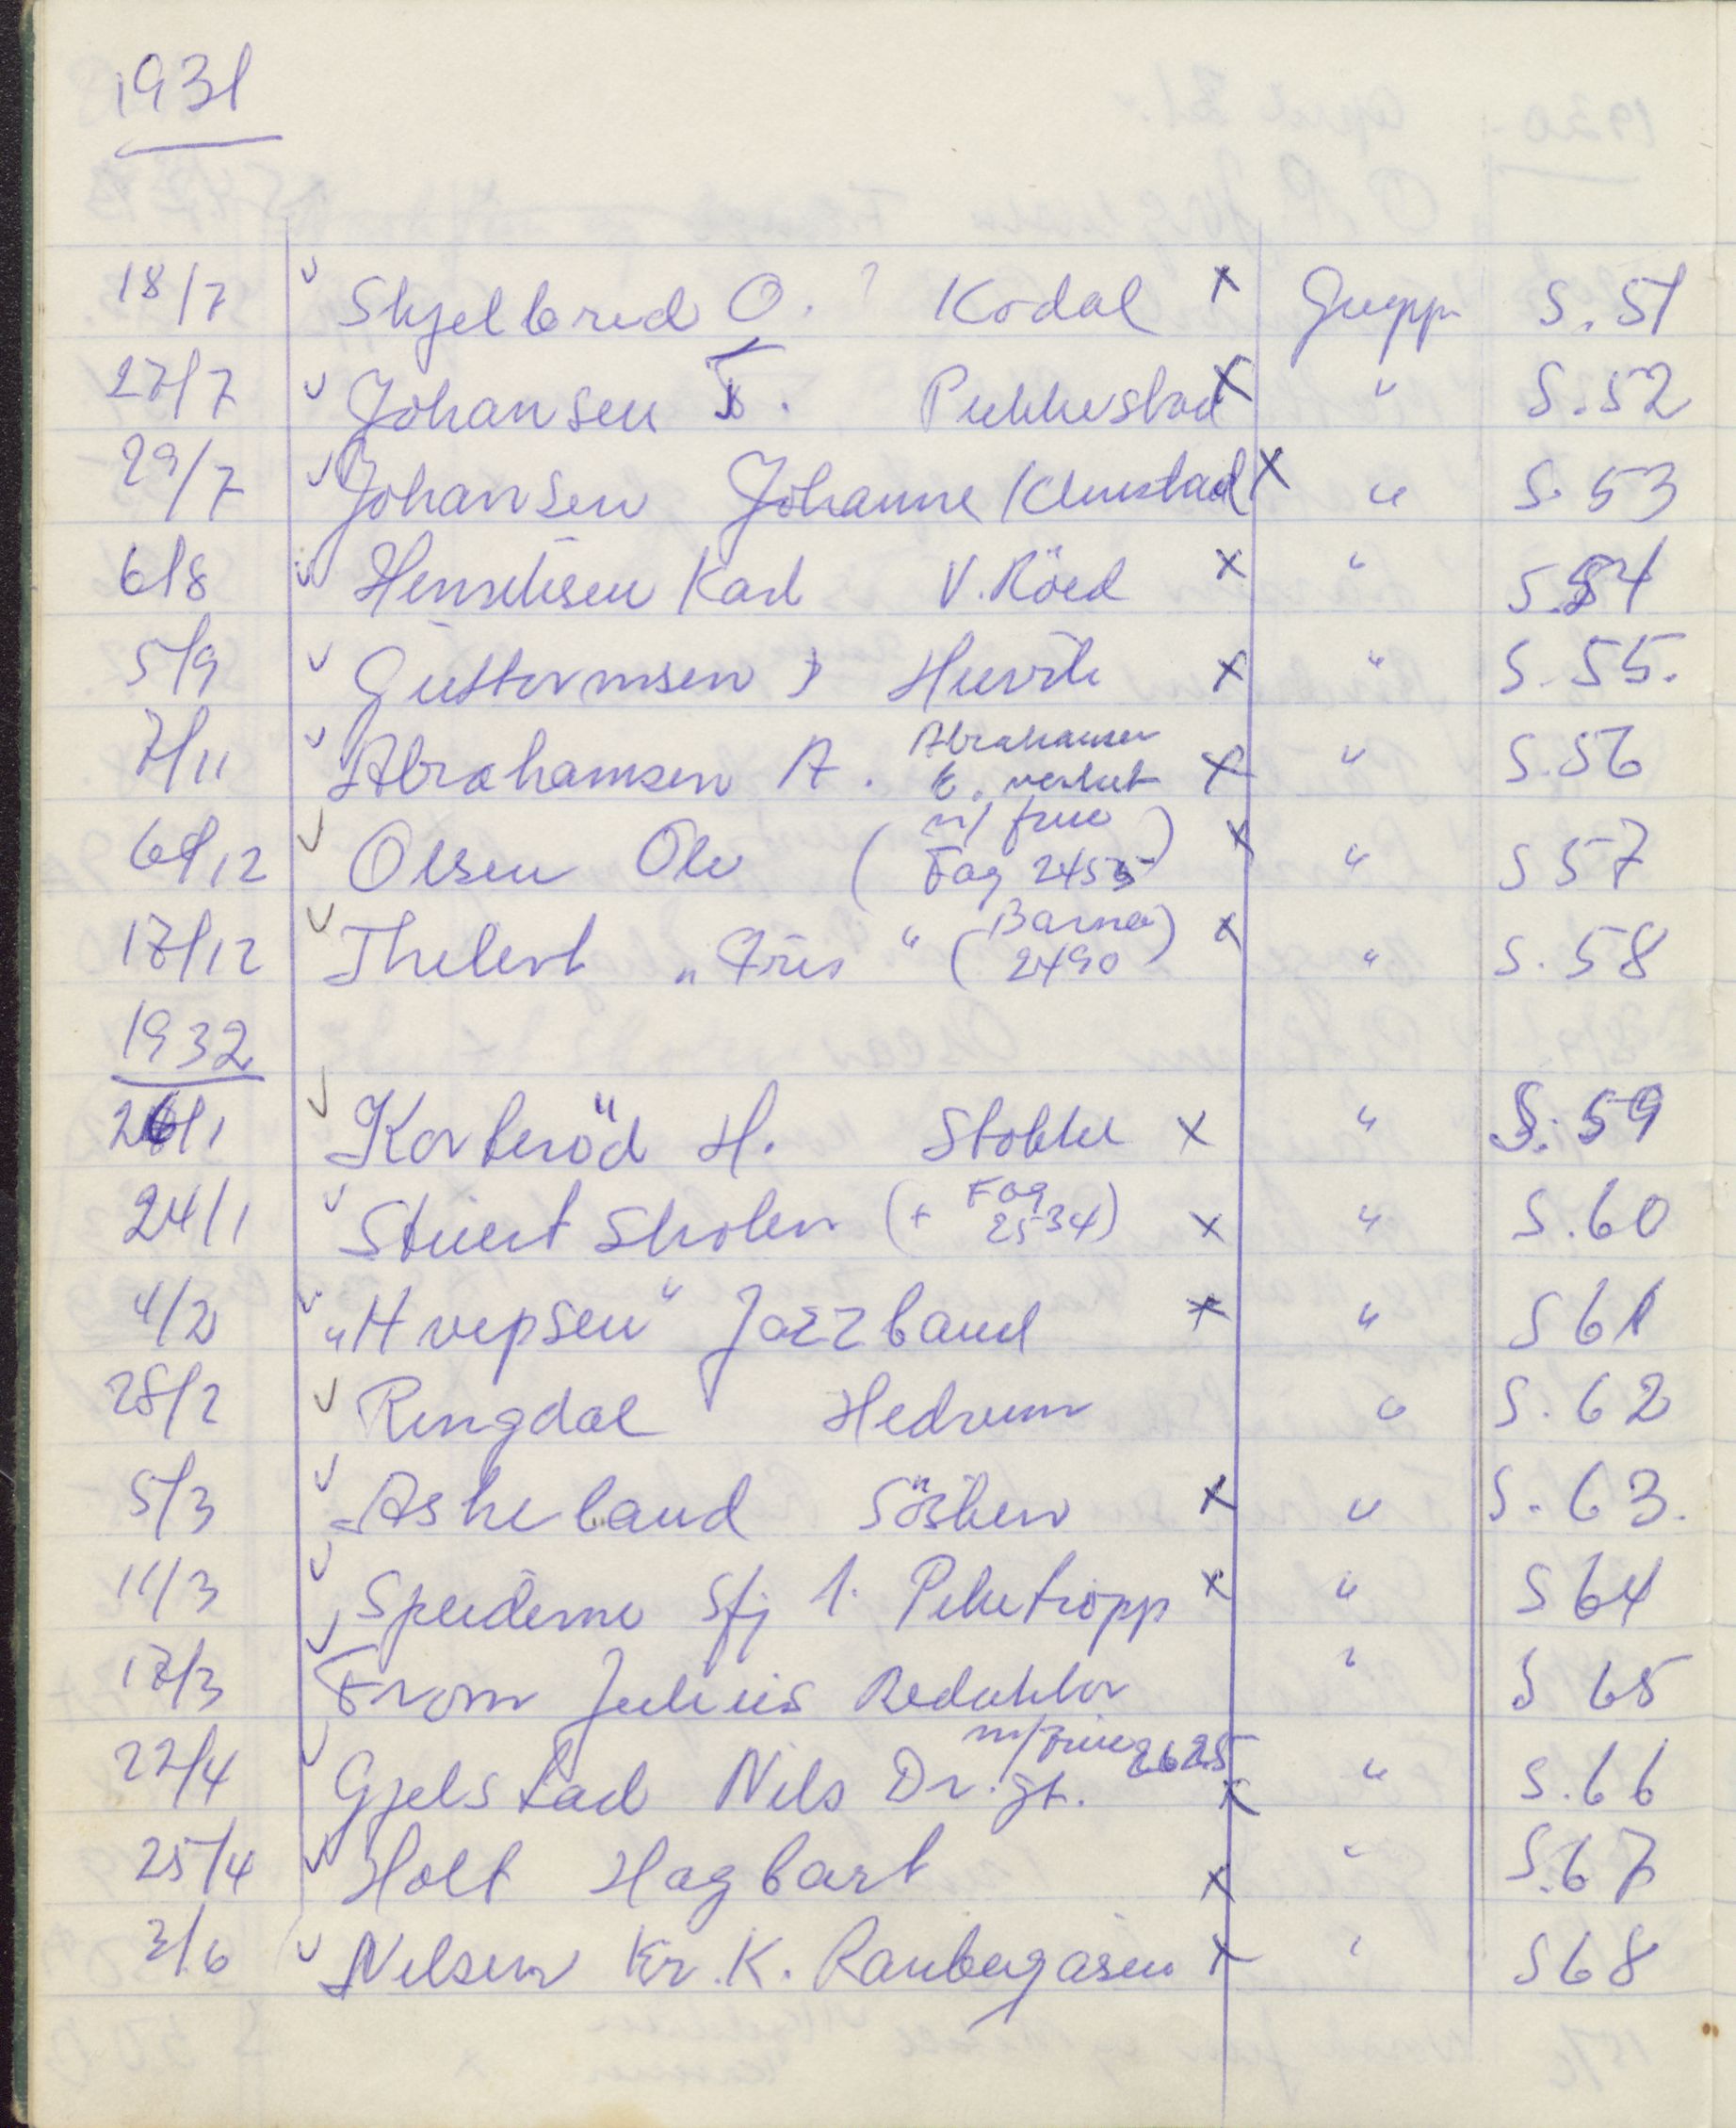 1931
18/7 v Skjelbred O. ? Kodal x Grupp. S. 51
27/7 v Johansen T. Pukkestad x " S. 52
29/7 v Johansen Johanne Klinestad x " S. 53
6/8 v Henriksen Karl V. Röed x " S. 54
5/9 v Guttormsen Huvik x " S. 55.
7/11 v Abrahamsen A. Abrahamsen E. x " S. 56
6/12 v Olsen Ole ( m/ frue Fag 2455 ) x " S 57
17/12 v Thelert „ Fris " ( Barna 2490 ) x " S. 58
1932
26/1 v Korteröd H. Stokke x " S. 59
24/1 v Stuert Skolen (+ Fag 2534) x " S. 60
4/2 v „Hvepsen" Jazzband x " S 61
28/2 v Ringdal Hedrum " S. 62
5/3 v Askeland Sösken x " S. 63.
11/3 v Speiderne Sfj 1. Piketropp x " S 64
17/3 v From Julius Redaktör " S 65
22/4 v Gjelstad Nils Dr. gt. m/Frue 2625 x " S. 66
25/4 v Holt Hagbart x " S. 67
3/6 v Nilsen Kr. K. Ranbergåsen x " S 68